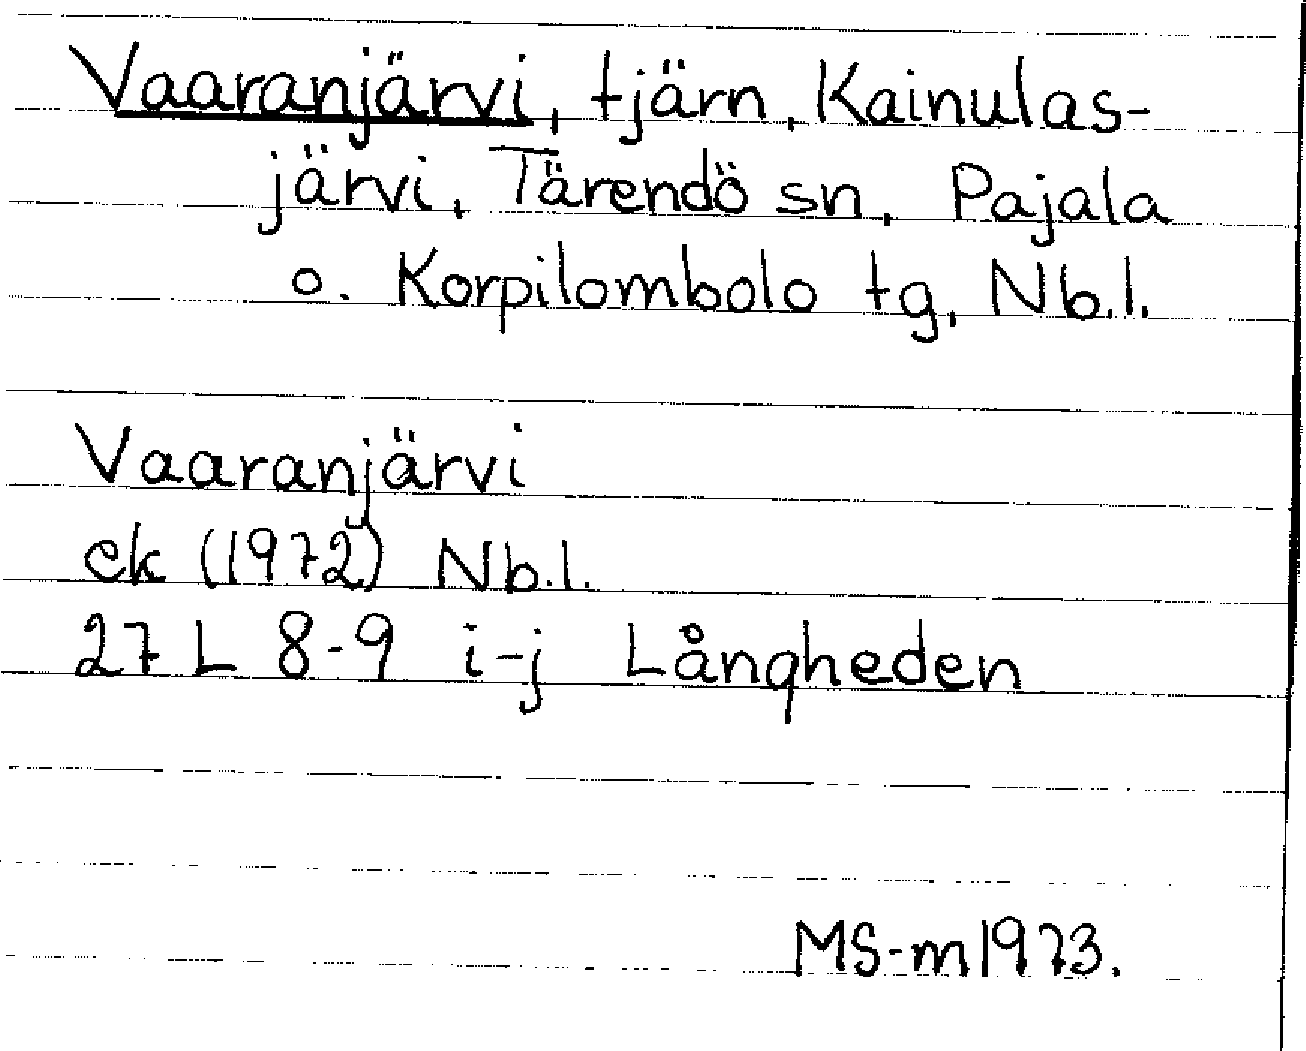 Vaaranjärvi, tjärn, Kainulas-
järvi, Tärendö sn, Pajala
o. Korpilombolo tg, Nb.l.
Vaaranjärvi
ek (1972) Nb.l.
27 L 8-9 i-j Långheden
MS-m 1973.